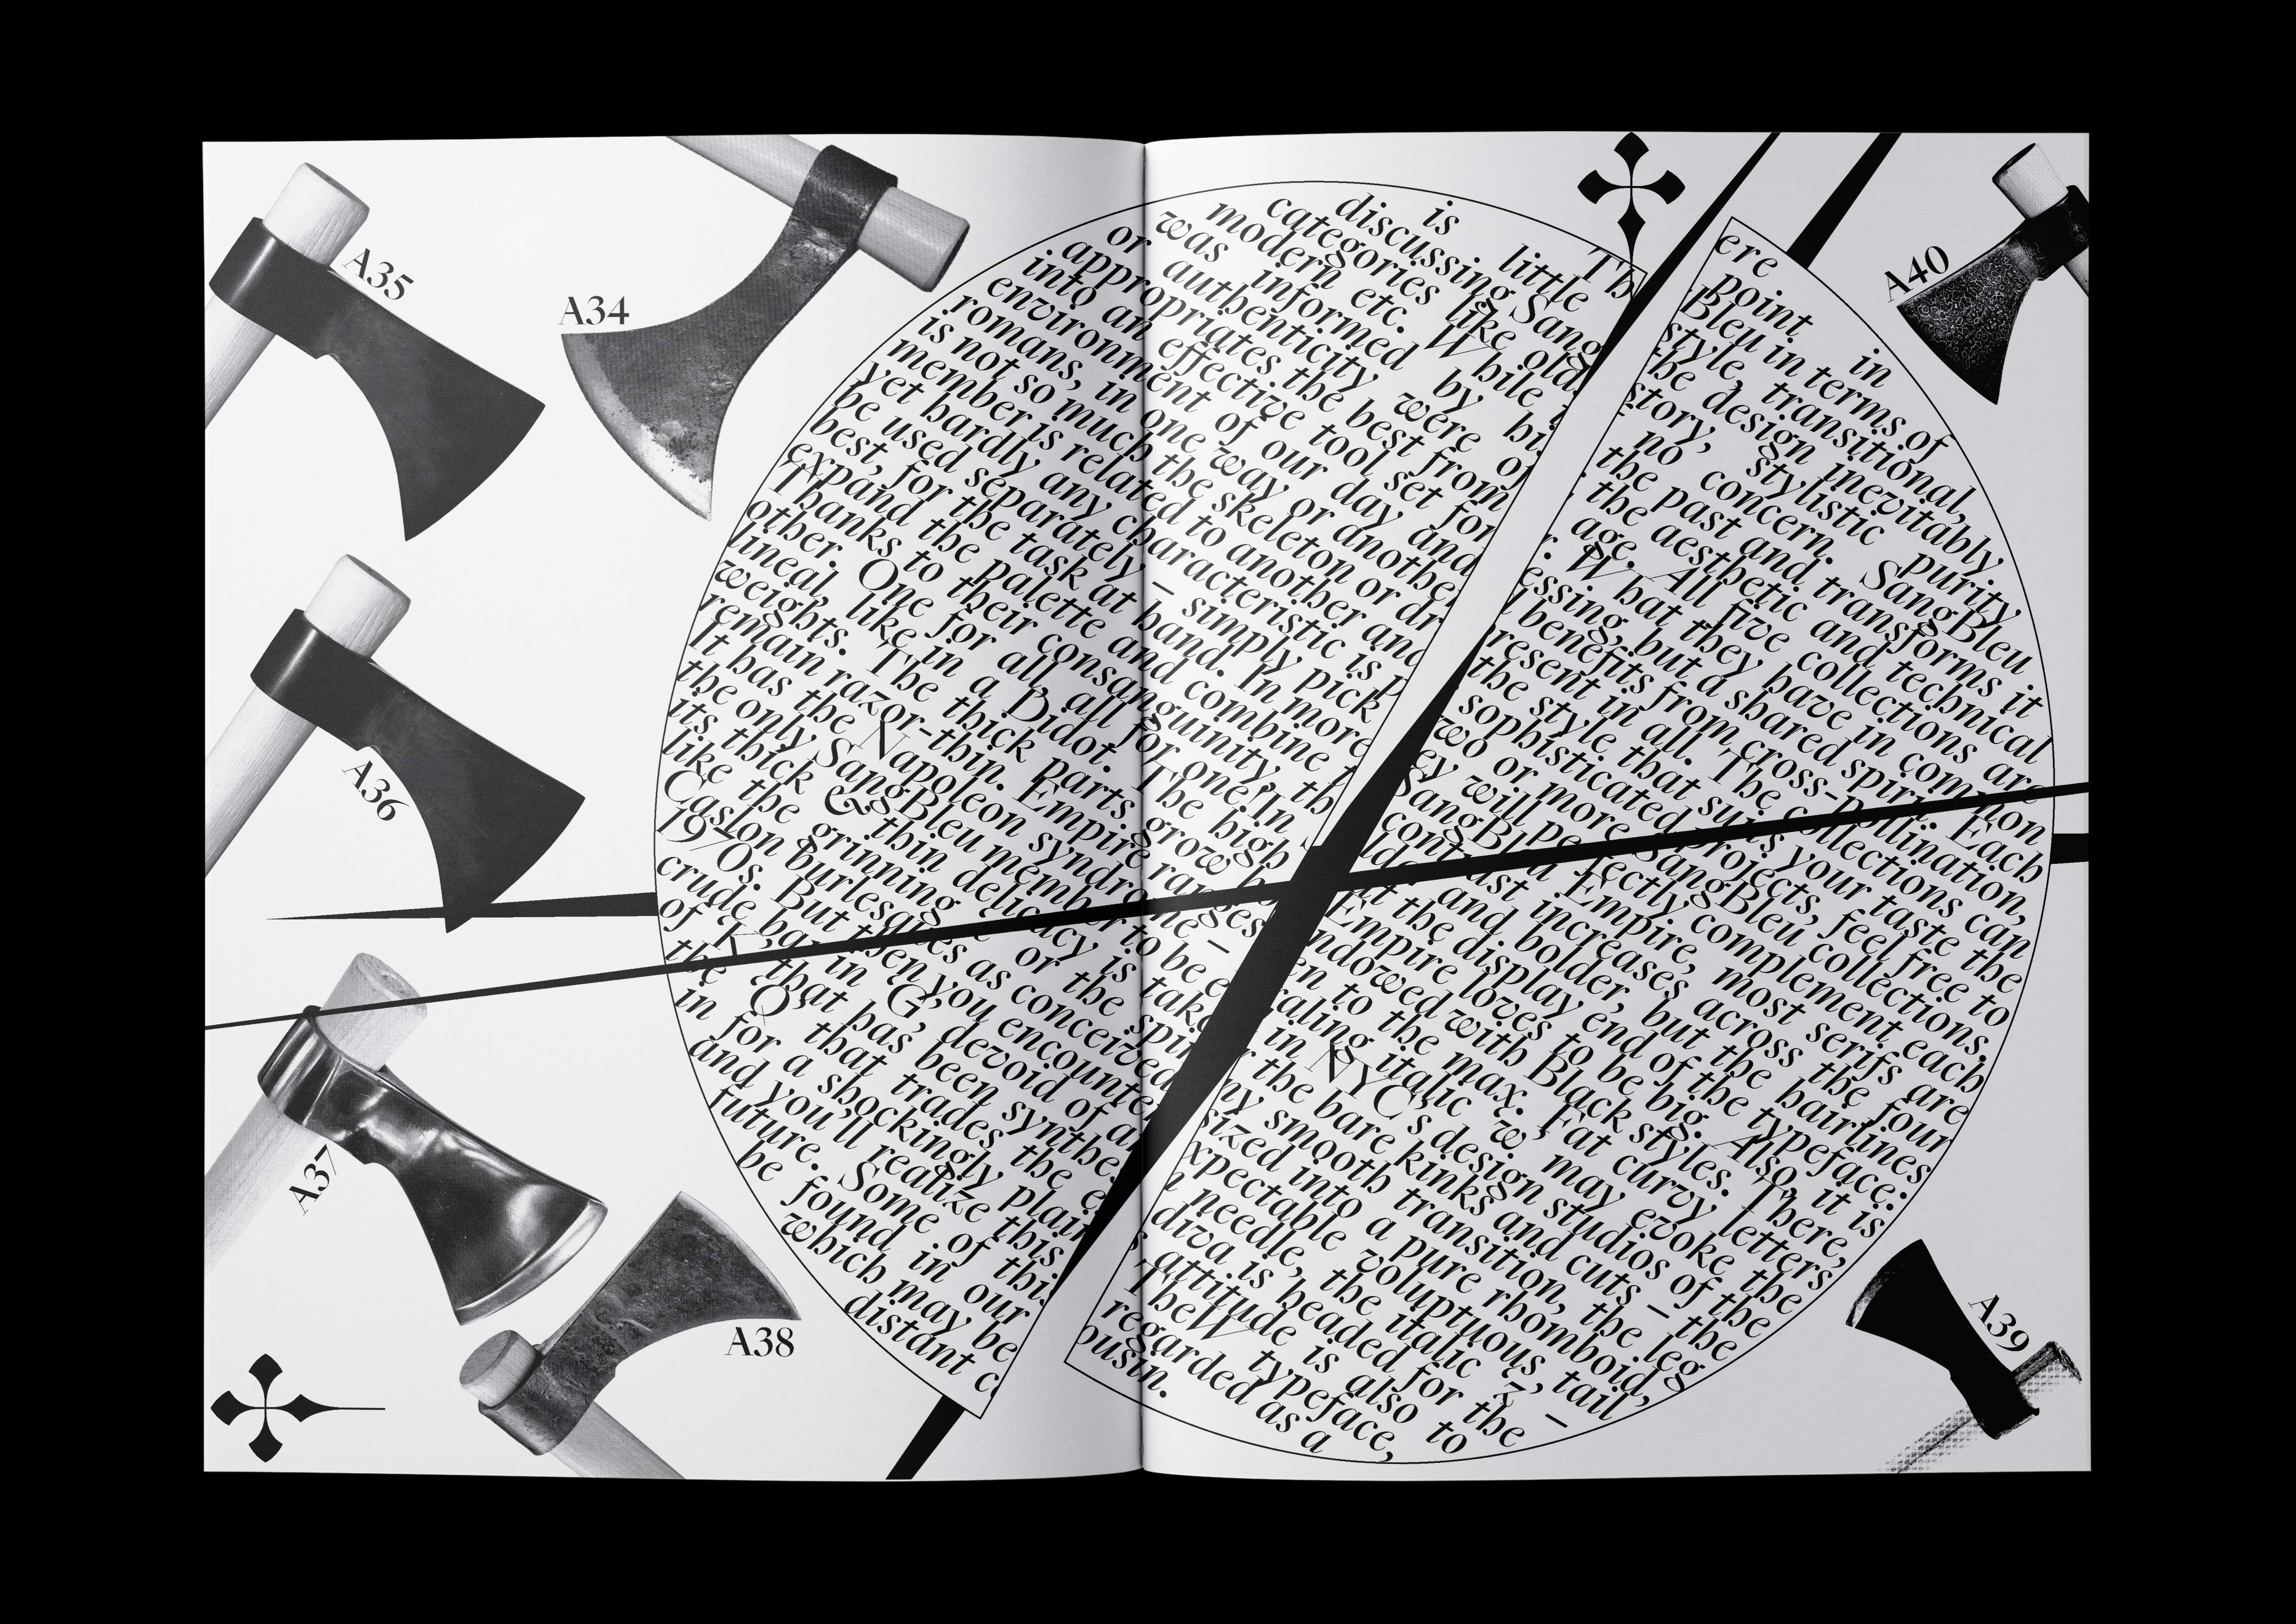 A35
A34
A36
A37
A38
A40
A39
There
is little point in
discussing SangBleu in terms of
categories like old style, transitional,
modern etc. While the design inevitably
was informed by history, stylistic purity
or authenticity were of no concern. SangBleu
appropriates the best from the past and transforms it
into an effective tool set for the aesthetic and technical
environment of our day and age. All five collections are
romans, in one way or another. What they have in common
is not so much the skeleton or dressing, but a shared spirit. Each
member is related to another and benefits from cross-pollination,
yet hardly any characteristic is present in all. The collections can
be used separately – simply pick the style that suits your taste the
best, for the task at hand. In more sophisticated projects, feel free to
expand the palette and combine two or more SangBleu collections.
Thanks to their consanguinity, they will perfectly complement each
other. One for all, all for one! In SangBleu Empire, most serifs are
lineal, like in a Didot. The high contrast increases across the four
weights. The thick parts grow bolder and bolder, but the hairlines
remain razor-thin. Empire ranges at the display end of the typeface:
It has the Napoleon syndrome – Empire loves to be big. Also, it is
the only SangBleu member to be endowed with Black styles. There,
its thick & thin delicacy is taken to the max. Fat curvy letters
like the grinning or the spiraling italic w, may evoke the
Caslon burlesques as conceived in NYC's design studios of the
1970s. But then you encounter the bare kinks and cuts – the
crude bar in G, devoid of any smooth transition, the leg
of K that has been synthesized into a pure rhomboid,
the Q, that trades the expectable voluptuous tail
in for a shockingly plain needle, the italic z –
and you'll realize this diva is headed for the
future. Some of this attitude is also to
be found in our TheW typeface,
which may be regarded as a
distant cousin.